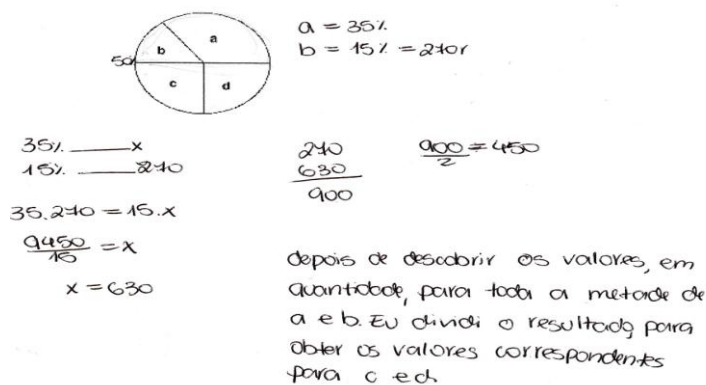 a = 35%
b = 15% = 270r
50%
b a
c d
35% ——— x
15% ——— 270
35.270 = 15.x
9450/15 = x
x = 630
270
630
900
900/2 = 450
depois de descobrir os valores, em
quantidade, para toda a metade de
a e b. Eu dividi o resultado, para
obter os valores correspondentes
para c e d.